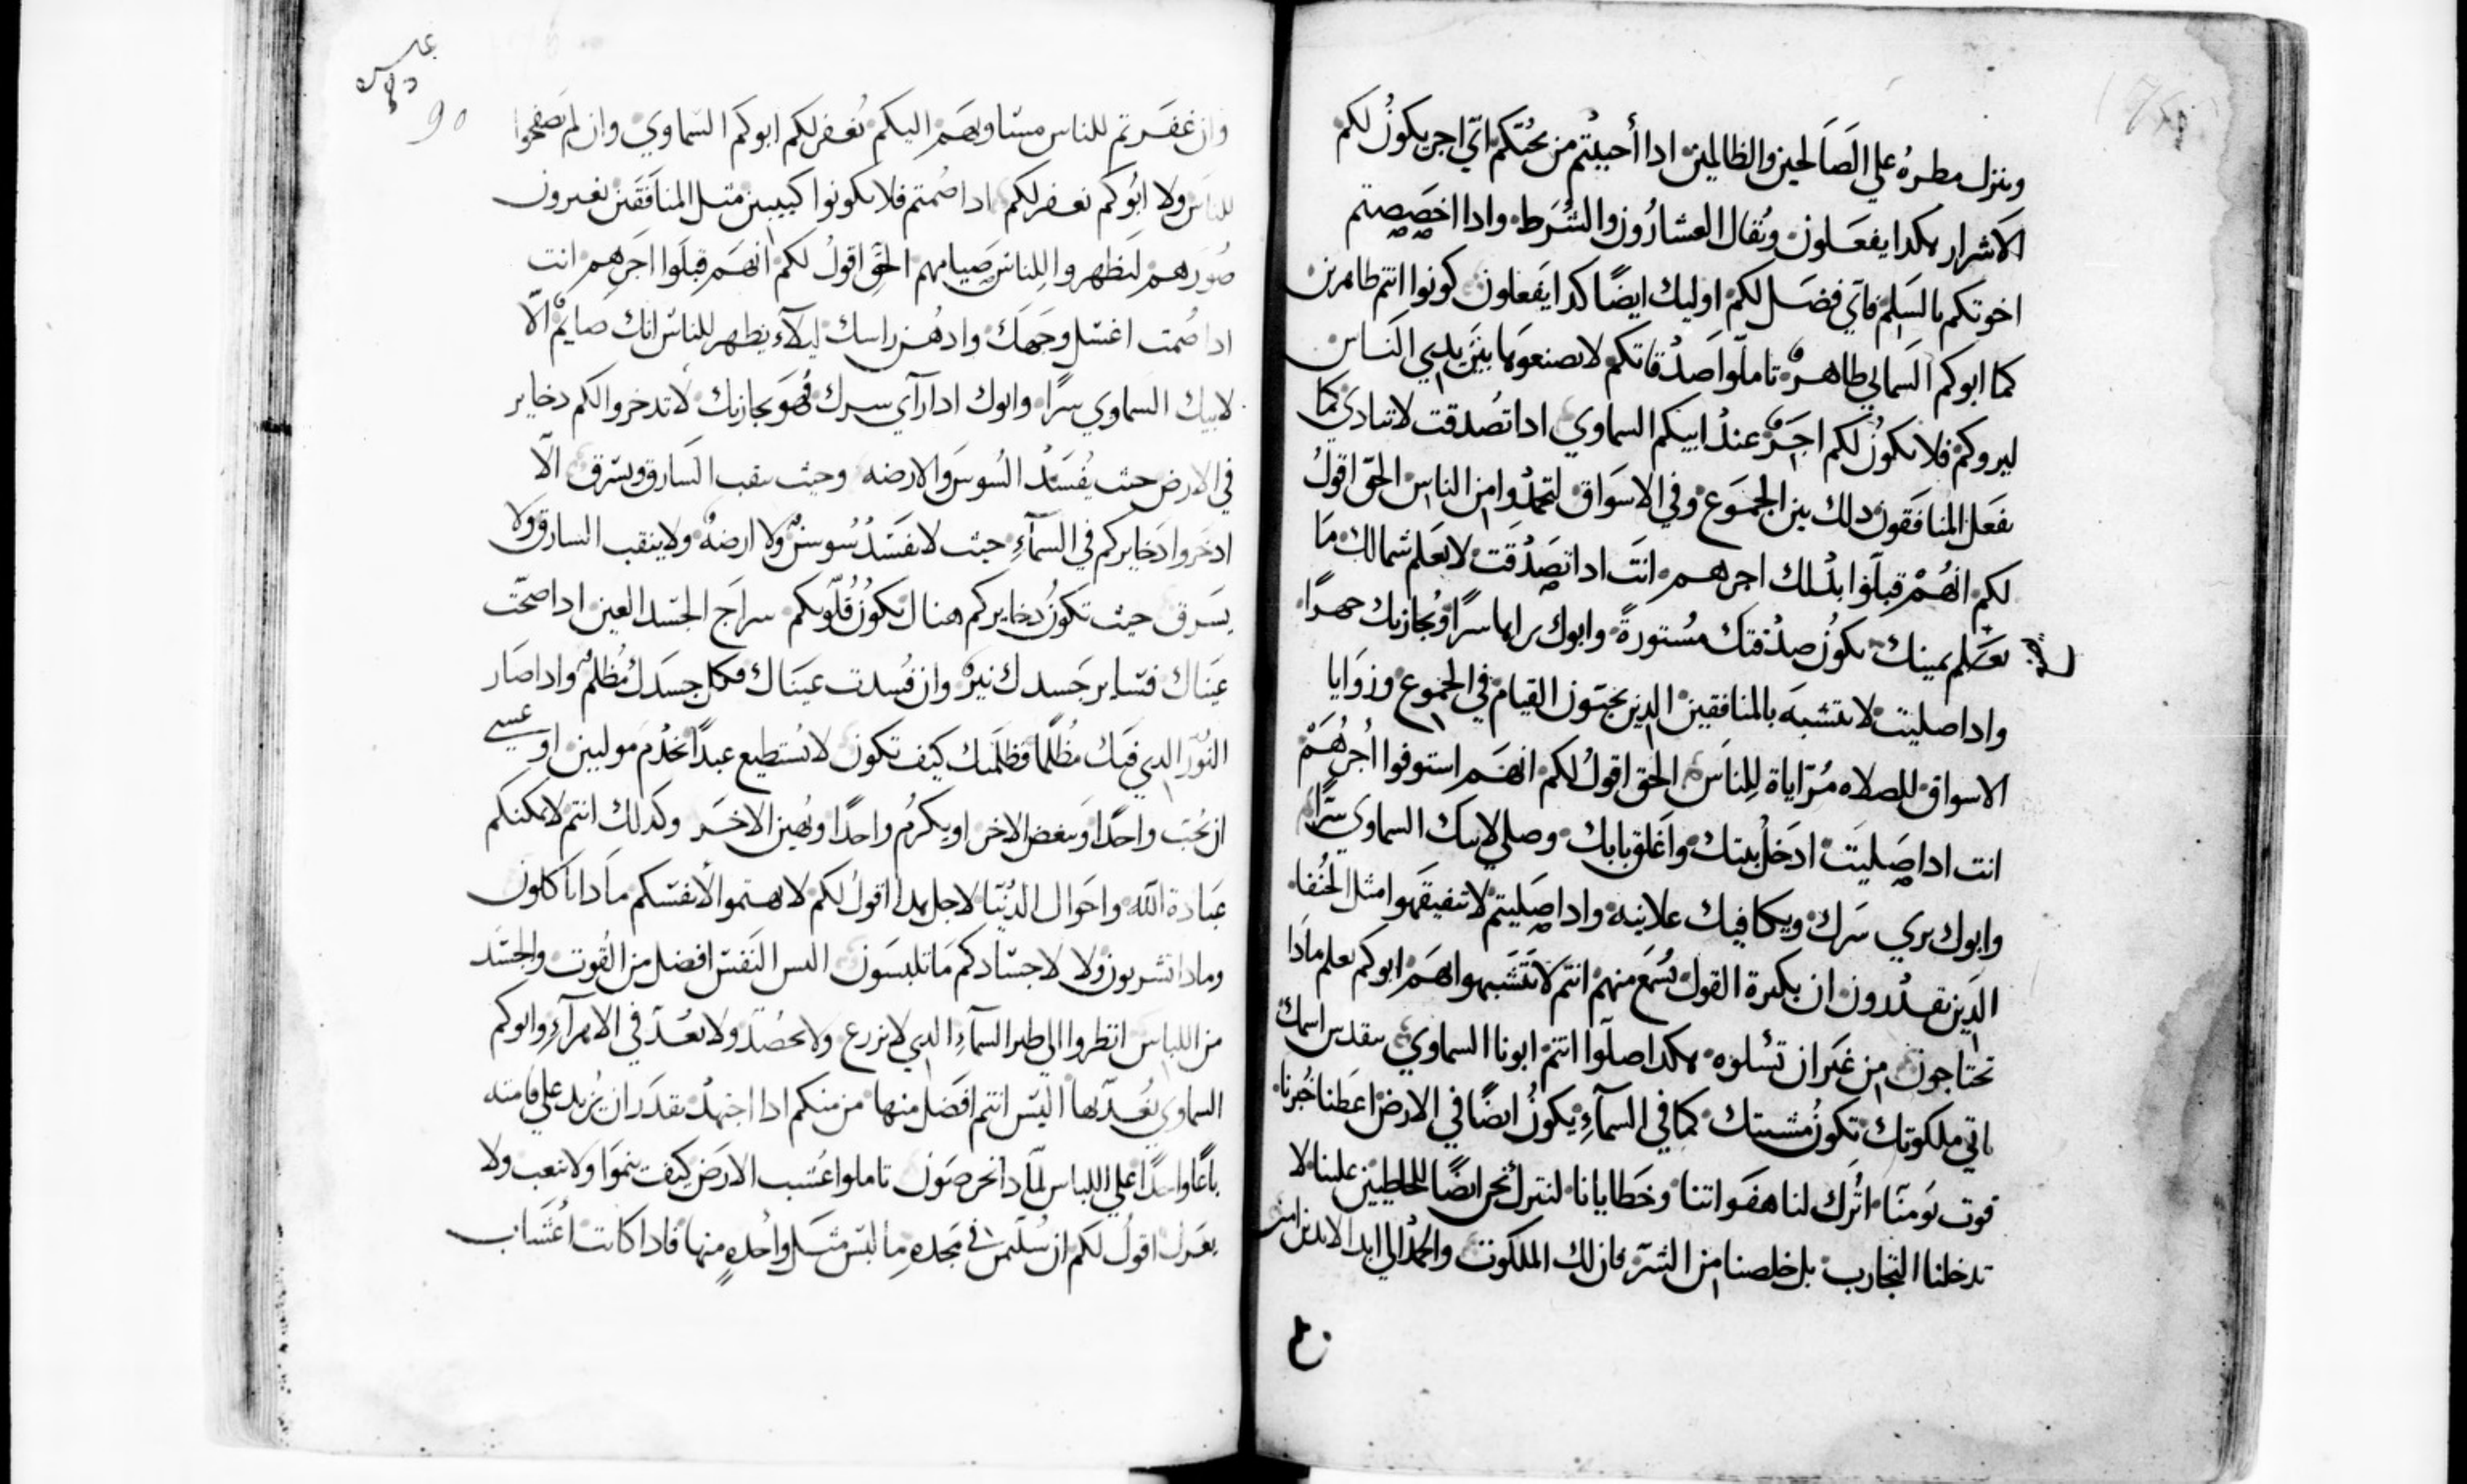 وينزل مطره علي الصالحين والظالمين اداأحببتم من يحبّكم ائ اجر يكون لكم
الاشرار هكدا يفعلون وتفال العشارون والشرط وادا اخصصتم
اخوتكم بالسلم فأي فضل لكم اوليك ايضًا كدا يفعلون كونوا انتم طاهرين
كما ابوكم السمائي طاهر تاملوا صدقاتكم لا تصنعوها بين يدي الناس
ليروكم فلا يكون لكم اجر عند ابيكم السماوي ادا تصدقت لا تنادي كما
يفعل المنافقون دلك بين الجموع وفي الاسواق لتحمدوا من الناس الحق اقول
لكم انهم قبلوا بدلك اجرهم انت ادا تصدقت لا تعلم شمالك ما
تعلم يمينك تكون صدقتك مستورة وابوك يراها سرًا ويجازيك جهرًا
وادا صليت لا تتشبه بالمنافقين الدين يحبون القيام في الجموع وزوايا
الاسواق للصلاه مرّاياة للناس الحق اقول لكم انهم استوفوا اجرهم
انت ادا صليت ادخل بيتك واغلق بابك وصلي لابيك السماوي سرًّا
وابوك يري سرك ويكافيك علانيه وادا صليتم لا تفيقهوا مثل الحنفا
الدين يقدرون ان بكثرة القول يسمع منهم انتم لا تتشبهوا بهم ابوكم يعلم مادا
تحتاجون من غير ان تسلوه هكدا صلوا انتم ابونا السماوي يتقدس اسمك
ياتي ملكوتك تكون مشيتك كما في السمآء يكون ايضًا في الارض اعطنا خبزنا
قوت يومنا اترك لنا هفواتنا وخطايانا لنترك نحن ايضًا للخاطيين علينا لا
تدخلنا التجارب بل خلصنا من الشر فان لك الملكوت والحمد الي ابد الابدين امين
90
وان غفرتم للناس مساويهم اليكم يغفر لكم ابوكم السماوي وان لم تصفحوا
للناس ولا ابوكم يغفر لكم ادا صمتم فلا تكونوا كيبين مثل المنافقين يغيرون
صورهم ليظهروا للناس صيامهم الحق اقول لكم انهم قبلوا اجرهم انت
ادا صمت اغسل وجهك وادهن راسك ليلآء يظهر للناس انك صايم الّا
لابيك السماوي سرًا وابوك ادا رآي سرك فهو يجازيك لا تدخروا لكم دخاير
في الارض حيث يفسد السوس والارضه وحيث ينقب السارق ويسرق الّا
ادخروا دخايركم في السمآء حيث لا يفسد سوس ولا ارضه ولا ينقب السارق ولا
يسرق حيث تكون دخايركم هناك تكون قلوبكم سراج الجسد العين ادا صحت
عيناك فساير جسدك نير وان فسدت عيناك فكل جسدك مظلم وادا صار
النور الدي فيك مظلمًا فظلمتك كيف تكون لا يستطيع عبدًا يخدم موليين او عسي
ان يحب واحدًا ويبغض الاخر او يكرم واحدًا ويهين الاخر وكدلك انتم لا يمكنكم
عبادة الله واحوال الدنيا لاجل هدا اقول لكم لا تهتموا لانفسكم مادا تاكلون
ومادا تشربون ولا لاجسادكم ما تلبسون اليس النفس افضل من القوت والجسد
من اللباس انظروا الي طير السمآء الدي لا يزرع ولا يحصد ولا يعد في الاهرآء وابوكم
السماوي يغديها اليس انتم افضل منها من منكم ادا اجتهد يقدر ان يزيد علي قامته
باعًا واحدًا علي اللباس لمادا تحرصون تاملوا عشب الارض كيف ينموا ولا يتعب ولا
يغزل اقول لكم ان سليمن في مجده ما لبس مثل واحده منها فادا كانت اعشاب